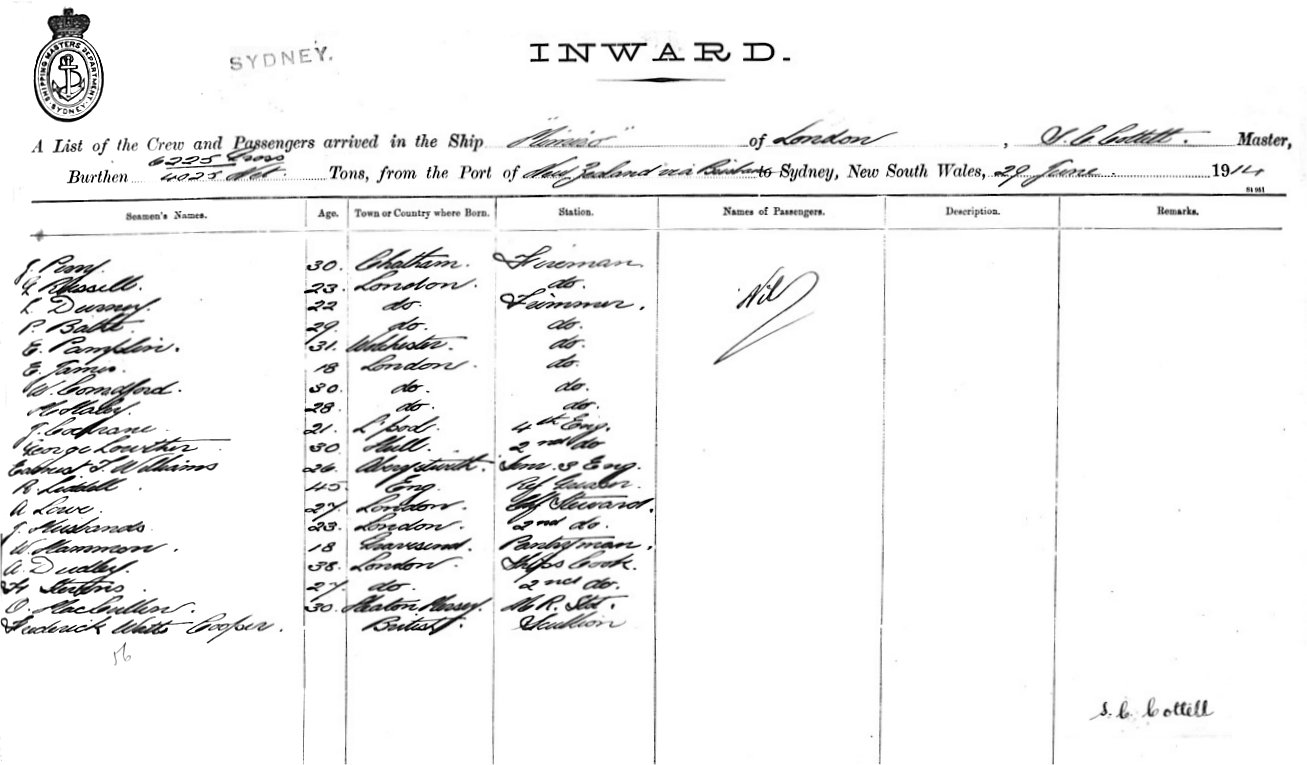 SHIPPING MASTERS DEPARTMENT. SYDNEY.
SYDNEY.
INWARD.
A List of the Crew and Passengers arrived in the Ship of London, S. C. Cottell. Master,
6225 Gross
Burthen 4023 Net. Tons, from the Port of New Zealand via Brisbane to Sydney, New South Wales, 29 June. 1914
Seamen's Names. Age. Town or Country where Born. Station. Names of Passengers. Description. Remarks.
J. 30. Chatham. Fireman
Russell. 23. London. do.
22 do. Trimmer.
P. 29. do. do.
E. Pamplin. 31. do.
E. James. 18 London. do.
W. 30. do. do.
28. do. do.
J. Cochrane. 21. L'pool. 4th Eng.
George Lowther 30 Hull. 2nd do
Williams 26. Eng.
R. Liddell. 45 Eng.
A. Lowe. 27. London. Steward.
J. Husbands. 23. London. 2nd do.
W. Hammon. 18 Gravesend. Pantryman.
A. Dudley. 38. London. Ships Cook.
27. do. 2nd do.
30.
Frederick Watts Cooper. British. Scullion
Nil
S. C. Cottell